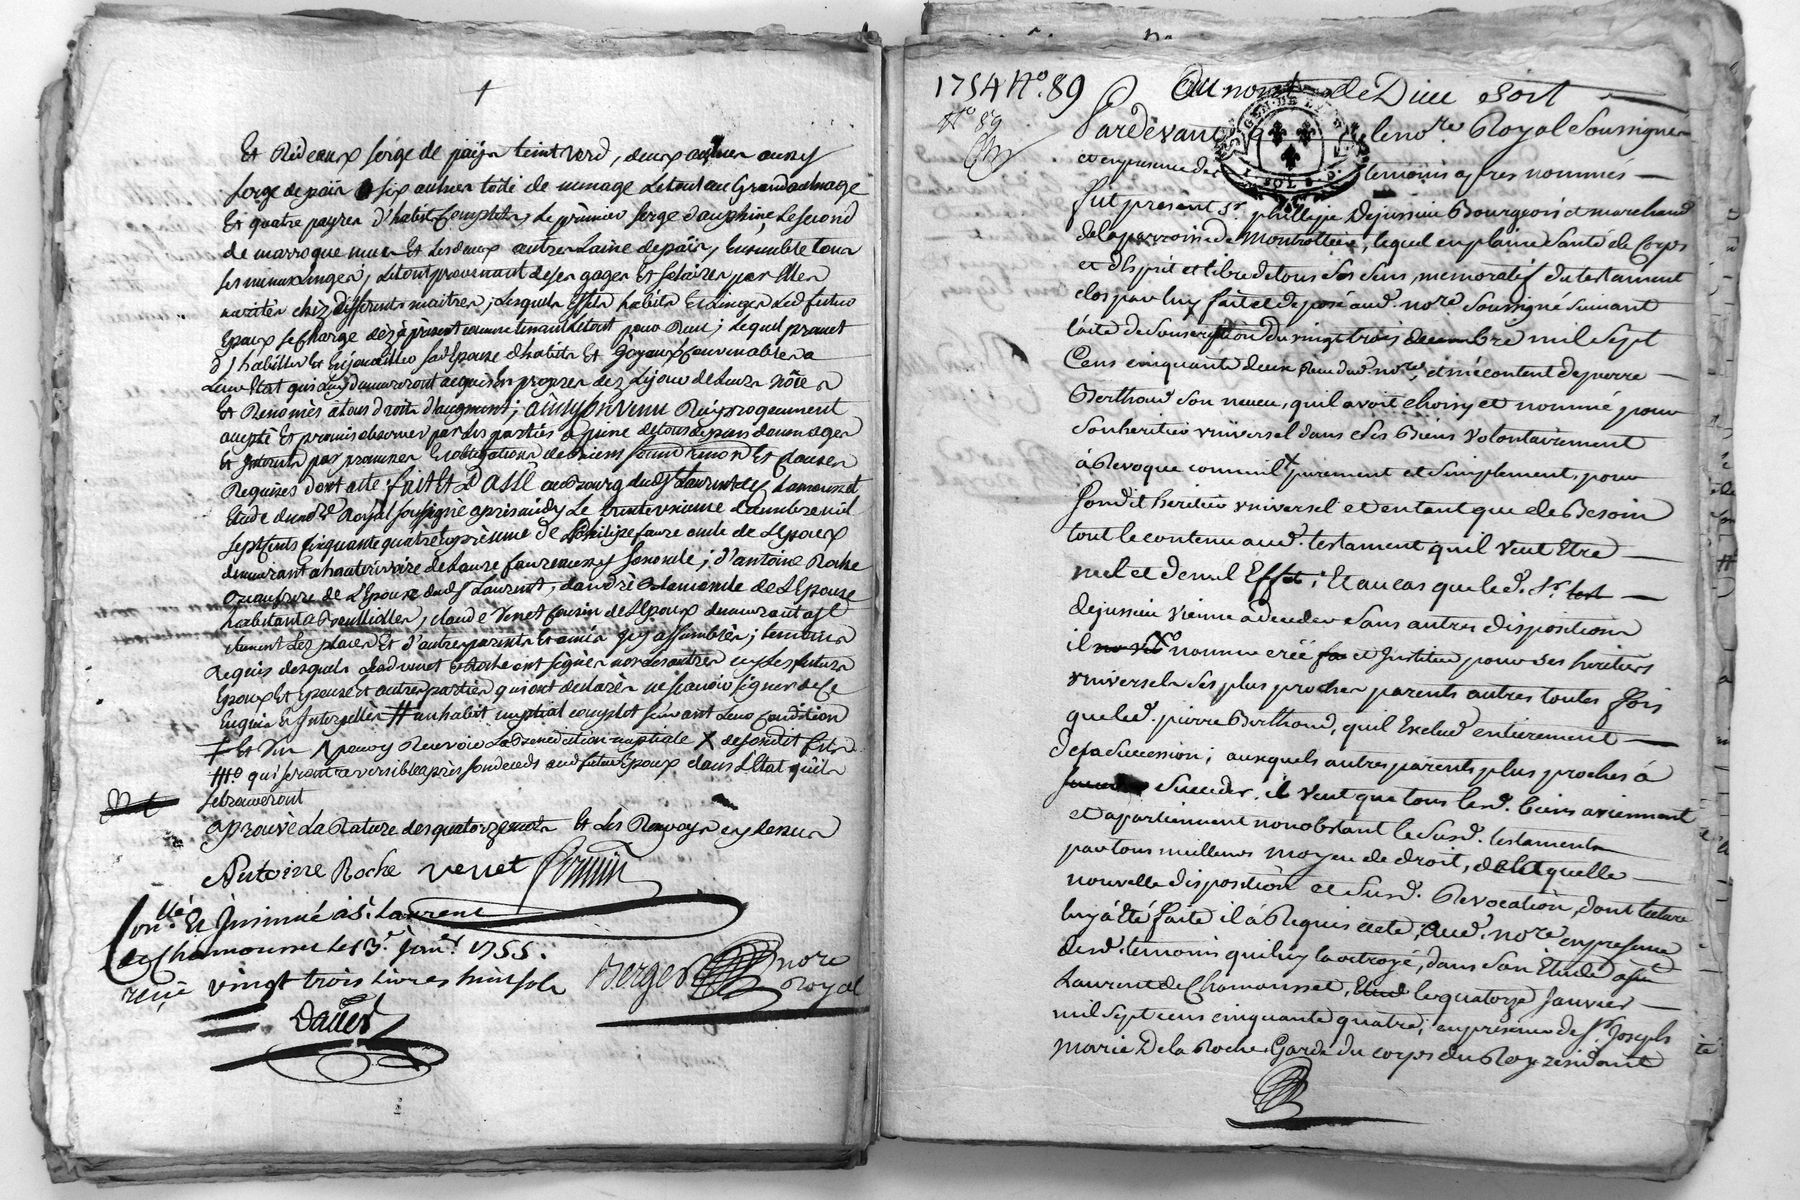 Et Rideaux serge de païs teint verd, deux autres aussy
serge de païs six aulnes toile de menage Le tout au Grand aulnage
Et quatre payres d'habits complets, Le prémier serge dauphine, Le second
de marroque mue Et Les deux autres Laine de païs, Ensemble tous
ses menus Linges, Le tout provenant de ses gages Et salaires par Elles
mérités chez differents maitres, Lesquels Effets habits Et Linges Led. futur
Epoux se charge dez à présent comme tenant Le tout pour Reçu; Lequel promet
d'habiller Et Enjoüailler sad. Epouse d'habits Et Joyaux convenables a
Leur Etat qui Luy demeureront acquis En propres dez Le jour de Leurs nôces
Et Renoncés a tous droits d'augment; ainsy Convenu Réciproquement
accepté Et promis observer par Les parties a peine de tous depens dommages
Et Interets par promesses Et obligations de biens soumissions Et clauses
Requises dont acte; fait Et Passé au Bourg dud. St. Laurent de Chamousset
Etude dud. nore. Royal soussigné apres midy Le trente decembre mil
sept Cents Cinquante quatre En présence de Philipe faure oncle de L'Epoux
demeurant a hauterivoire de Laure faure aussy son oncle; d'antoine Roche
frere de L'Epouse dud. St. Laurent, d'andré oncle de L'Epouse
habitant a Brullioles, claude Venet cousin de L'Epoux demeurant a St.
clement Les places Et d'autres parents Et amis icy assemblés; temoins
Requis desquels Led. venet Et Roche ont signés non Les autres ny Les futurs
Epoux Et Epouse et autres parties qui ont declarés ne scavoir signer de Ce
Enquis Et Interpellés # un habit nuptial complet suivant Leur condition
Et pour y Recevoir La Benediction nuptiale X desondit
qui seront reversibles après son deceds aud. futur Epoux dans L'Etat qu'ils
se trouveront
aprouvé La Rature de quatorze mots Et Les Renvoys cy dessus
Antoine Roche venet
Conllé. Et Jnsinué à St. Laurent
de Chamousset Le 13e. janer. 1755.
reçu vingt trois Livres huit sols
Berger nore
Royal
Daver
1754 No. 89
No 89
Au nom de Dieu soit
Pardevant le nore. Royal Soussigné
et en presence des temoins apres nommés
fut present Sr. phillype Dejussieu Bourgeois et marchand
de la parroisse de Montrottier, lequel en plaine Santé de Corps
et d'Esprit et libre de tous Ses Sens, memoratif du testament
clos par luy fait et deposé aud. nore. Soussigné Suivant
l'acte de Souscription du vingt trois decembre mil Sept
Cens cinquante deux Receu dud. nore., et mécontent de pierre
Berthoud Son neveu, quil avoit choisy et nommé pour
Son heritier universel dans Ses Biens volontairement
à Revoque comm' il purement et Simplement, pour
Sondit heritier universel et en tant que de Besoin
tout le contenu aud. testament quil veut Etre
nul et de nul Effet; Et au cas que led. Sr.
dejussieu vienne à deceder Sans autres dispositions
il nomme créé et Jnstitue pour Ses heritiers
universels Ses plus proches parents autres toutes fois
que led. pierre Berthoud, quil Exclud entierement
de Sa Succession; auxquels autres parents plus proches à
Succeder, il veut que tous lesd. biens aviennent
et apartiennent nonobstant le Susd. testament
par tous meilleurs moyens de droit, de laquelle
nouvelle disposition et Susd. Revocation, dont lecture
luy à été faite il à Requis acte, Aud. nore. en presence
desd. temoins qui luy la octroyé, dans Son Etude a St.
Laurent de Chamousset, le quatorze Janvier
mil Sept cens cinquante quatre; en presence de Sr. Joseph
Marie De la Roche Garde du corps du Roy residant